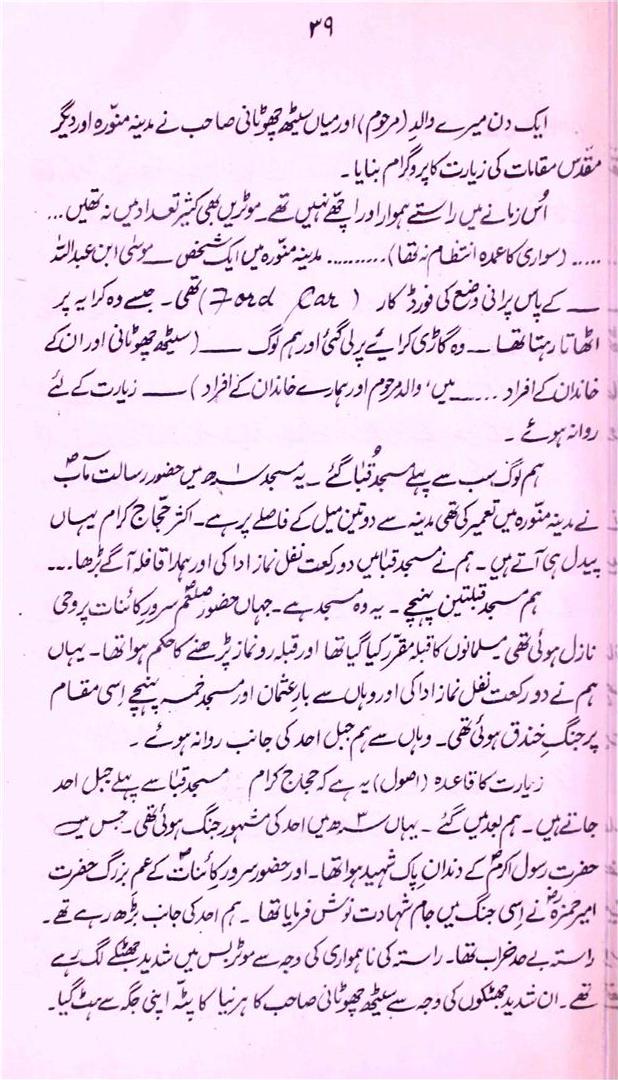 ۳۹
ایک دن میرے والد (مرحوم) اور میاں سیٹھ چھوٹانی صاحب نے مدینہ منوّرہ اور دیگر
مقدّس مقامات کی زیارت کا پروگرام بنایا۔
اُس زمانے میں راستے ہموار اور اچھّے نہیں تھے۔ موٹریں بھی کثیر تعداد میں نہ تھیں...
..... (سواری کا عمدہ انتظام نہ تھا).......... مدینہ منوّرہ میں ایک شخص — موسٰی ابن عبداللہ
— کے پاس پرانی وضع کی فورڈ کار (Ford Car) تھی۔ جسے وہ کرایہ پر
اٹھاتا رہتا تھا — وہ گاڑی کرائے پر لی گئی اور ہم لوگ — (سیٹھ چھوٹانی اور ان کے
خاندان کے افراد ..... میں، والد مرحوم اور ہمارے خاندان کے افراد) — زیارت کے لئے
روانہ ہوئے۔
ہم لوگ سب سے پہلے مسجد قُبا گئے۔ یہ مسجد ۱ھ میں حضور رسالت مآبؐ
نے مدینہ منوّرہ میں تعمیر کی تھی مدینہ سے دو تین میل کے فاصلے پر ہے۔ اکثر حجّاج کرام یہاں
پیدل ہی آتے ہیں۔ ہم نے مسجد قبا میں دو رکعت نفل نماز ادا کی اور ہمارا قافلہ آگے بڑھا...
ہم مسجد قبلتین پہنچے۔ یہ وہ مسجد ہے۔ جہاں حضور صلعم سرورِ کائنات پر وحی
نازل ہوئی تھی مسلمانوں کا قبلہ مقرّر کیا گیا تھا اور قبلہ رو نماز پڑھنے کا حکم ہوا تھا۔ یہاں
ہم نے دو رکعت نفل نماز ادا کی اور وہاں سے بارِ عثمان اور مسجد خمسہ پہنچے اِسی مقام
پر جنگِ خندق ہوئی تھی۔ وہاں سے ہم جبل احد کی جانب روانہ ہوئے۔
زیارت کا قاعدہ (اصول) یہ ہے کہ حجاج کرام مسجد قبا سے پہلے جبل احد
جاتے ہیں۔ ہم بعد میں گئے۔ یہاں ۳ھ میں احد کی مشہور جنگ ہوئی تھی۔ جس میں
حضرت رسول اکرمؐ کے دندانِ پاک شہید ہوا تھا۔ اور حضور سرورِ کائناتؐ کے عم بزرگ حضرت
امیر حمزہؓ نے اِسی جنگ میں جام شہادت نوش فرمایا تھا۔ ہم احد کی جانب بڑھ رہے تھے۔
راستہ بے حد خراب تھا۔ راستہ کی ناہمواری کی وجہ سے موٹر بس میں شدید جھٹکے لگ رہے
تھے۔ ان شدید جھٹکوں کی وجہ سے سیٹھ چھوٹانی صاحب کا ہرنیا کا پٹّہ اپنی جگہ سے ہٹ گیا۔